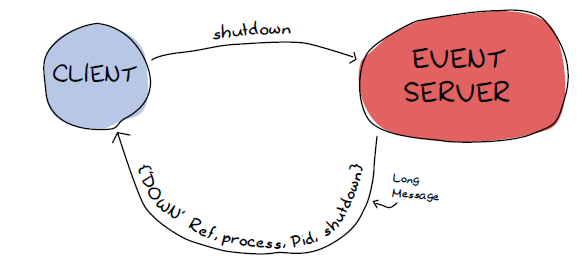 shutdown
CLIENT
EVENT
SERVER
{'DOWN' Ref, process, Pid, shutdown}
Long
Message